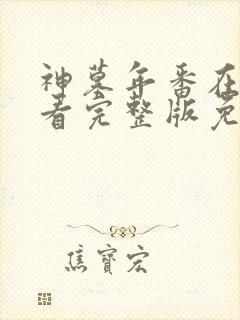 神墓年番在
看完整版免
焦寶宏